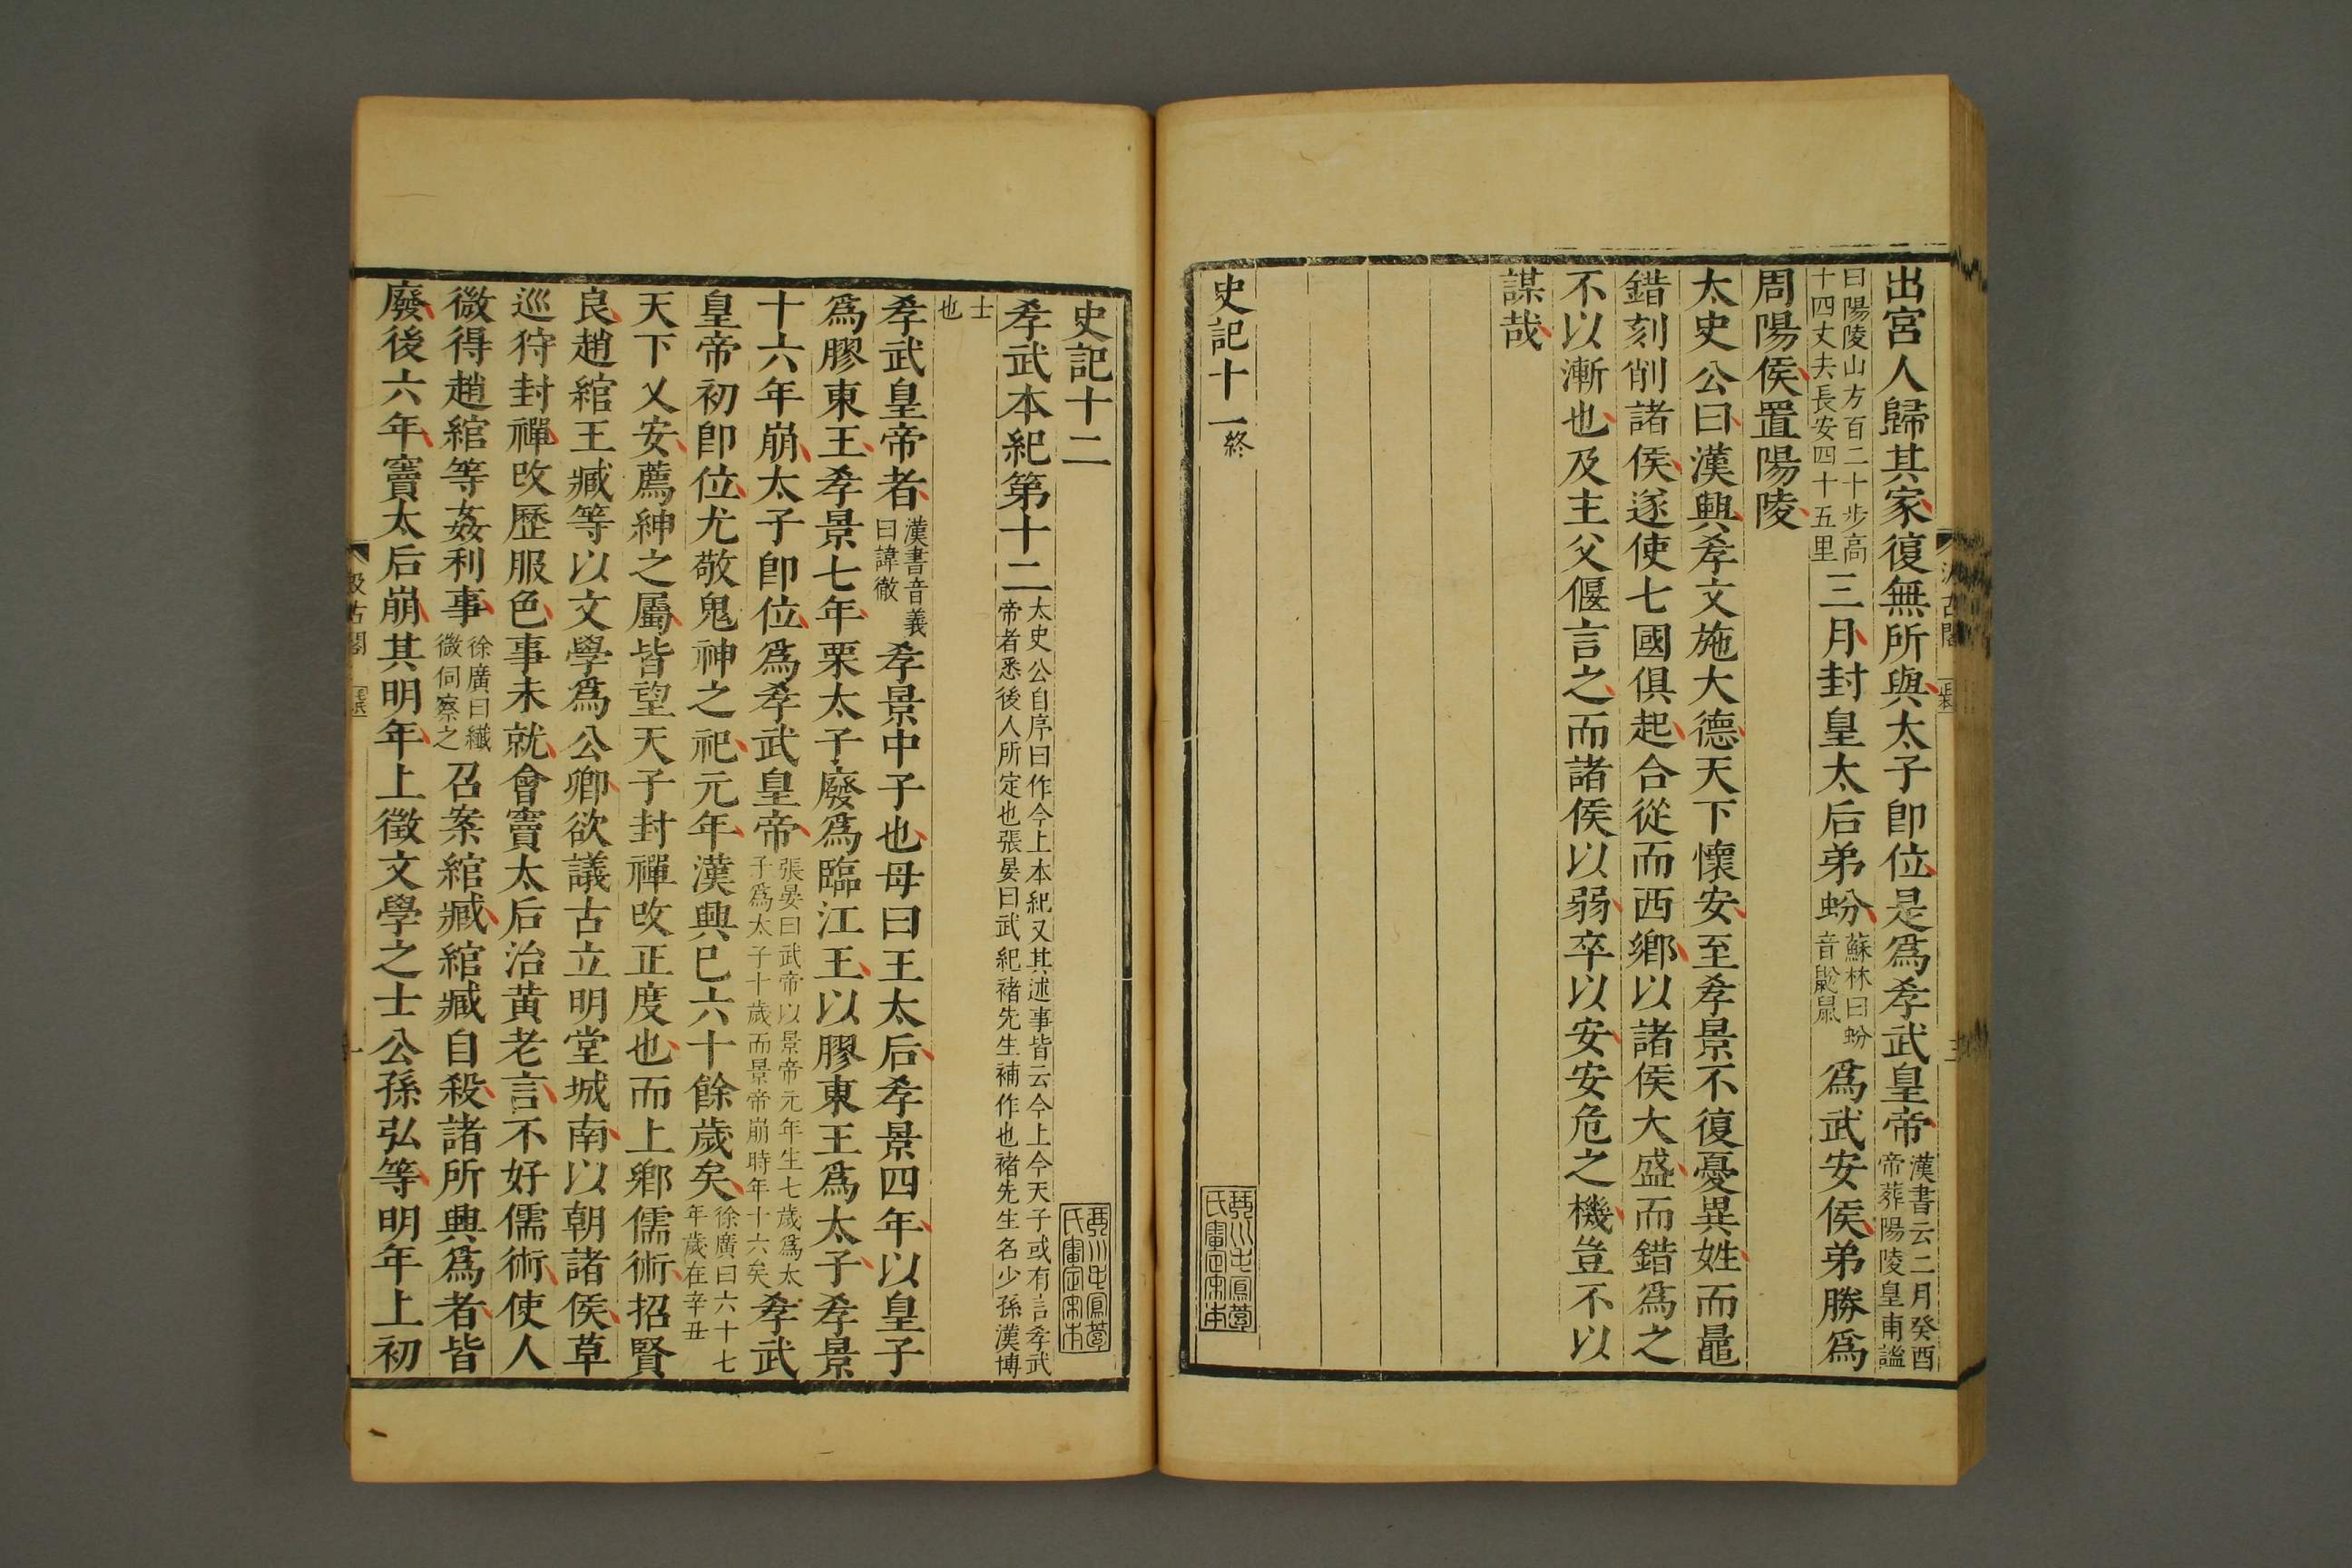 出宮人歸其家復無所與太子卽位是爲孝武皇帝漢書云二月癸酉帝葬陽陵皇甫謐
曰陽陵山方百二十步高十四丈去長安四十五里三月封皇太后弟蚡蘇林曰蚡音鼢鼠爲武安侯弟勝爲
周陽侯置陽陵
太史公曰漢興孝文施大德天下懷安至孝景不復憂異姓而鼂
錯刻削諸侯遂使七國俱起合從而西鄉以諸侯大盛而錯爲之
不以漸也及主父偃言之而諸侯以弱卒以安安危之機豈不以
謀哉
史記十一終
史記十二
孝武本紀第十二太史公自序曰作今上本紀又其述事皆云今上今天子或有言孝武帝者悉後人所定也張晏曰武紀褚先生補作也褚先生名少孫漢博
士也
孝武皇帝者漢書音義曰諱徹孝景中子也母曰王太后孝景四年以皇子
爲膠東王孝景七年栗太子廢爲臨江王以膠東王爲太子孝景
十六年崩太子卽位爲孝武皇帝張晏曰武帝以景帝元年生七歲爲太子爲太子十歲而景帝崩時年十六矣孝武
皇帝初卽位尤敬鬼神之祀元年漢興已六十餘歲矣徐廣曰六十七年歲在辛丑
天下乂安薦紳之屬皆望天子封禪改正度也而上鄉儒術招賢
良趙綰王臧等以文學爲公卿欲議古立明堂城南以朝諸侯草
巡狩封禪改歷服色事未就會竇太后治黃老言不好儒術使人
微得趙綰等姦利事徐廣曰纖微伺察之召案綰臧綰臧自殺諸所興爲者皆
廢後六年竇太后崩其明年上徵文學之士公孫弘等明年上初
汲古閣